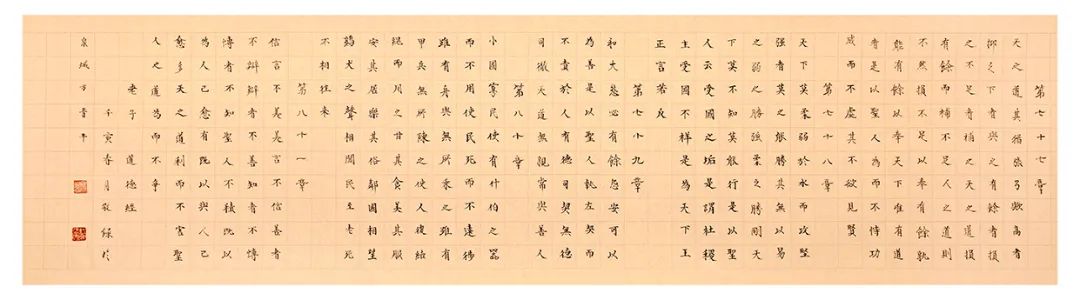 第七十七章
天之道其猶張弓歟高者
抑之下者與之有餘者損
之不足者補之天之道損
有餘而補不足人之道則
不然損不足以奉有餘孰
能有餘以奉天下唯有道
者是以聖人為而不恃功
成而不處其不欲見賢
第七十八章
天下莫柔弱於水而攻堅
強者莫之能勝其無以易
之弱之勝強柔之勝剛天
下莫不知莫能行是以聖
人云受國之垢是謂社稷
主受國不祥是為天下王
正言若反
第七十九章
和大怨必有餘怨安可以
為善是以聖人執左契而
不責於人有德司契無德
司徹天道無親常與善人
第八十章
小國寡民使有什伯之器
而不用使民死而不遠徙
雖有舟輿無所乘之雖有
甲兵無所陳之使人復結
繩而用之甘其食美其服
安其居樂其俗鄰國相望
鷄犬之聲相聞民至老死
不相往來
第八十一章
信言不美美言不信善者
不辯辯者不善知者不博
博者不知聖人不積既以
為人己愈有既以與人己
愈多天之道利而不害聖
人之道為而不爭
老子道德經
壬寅春月敬錄於
泉城方晋平